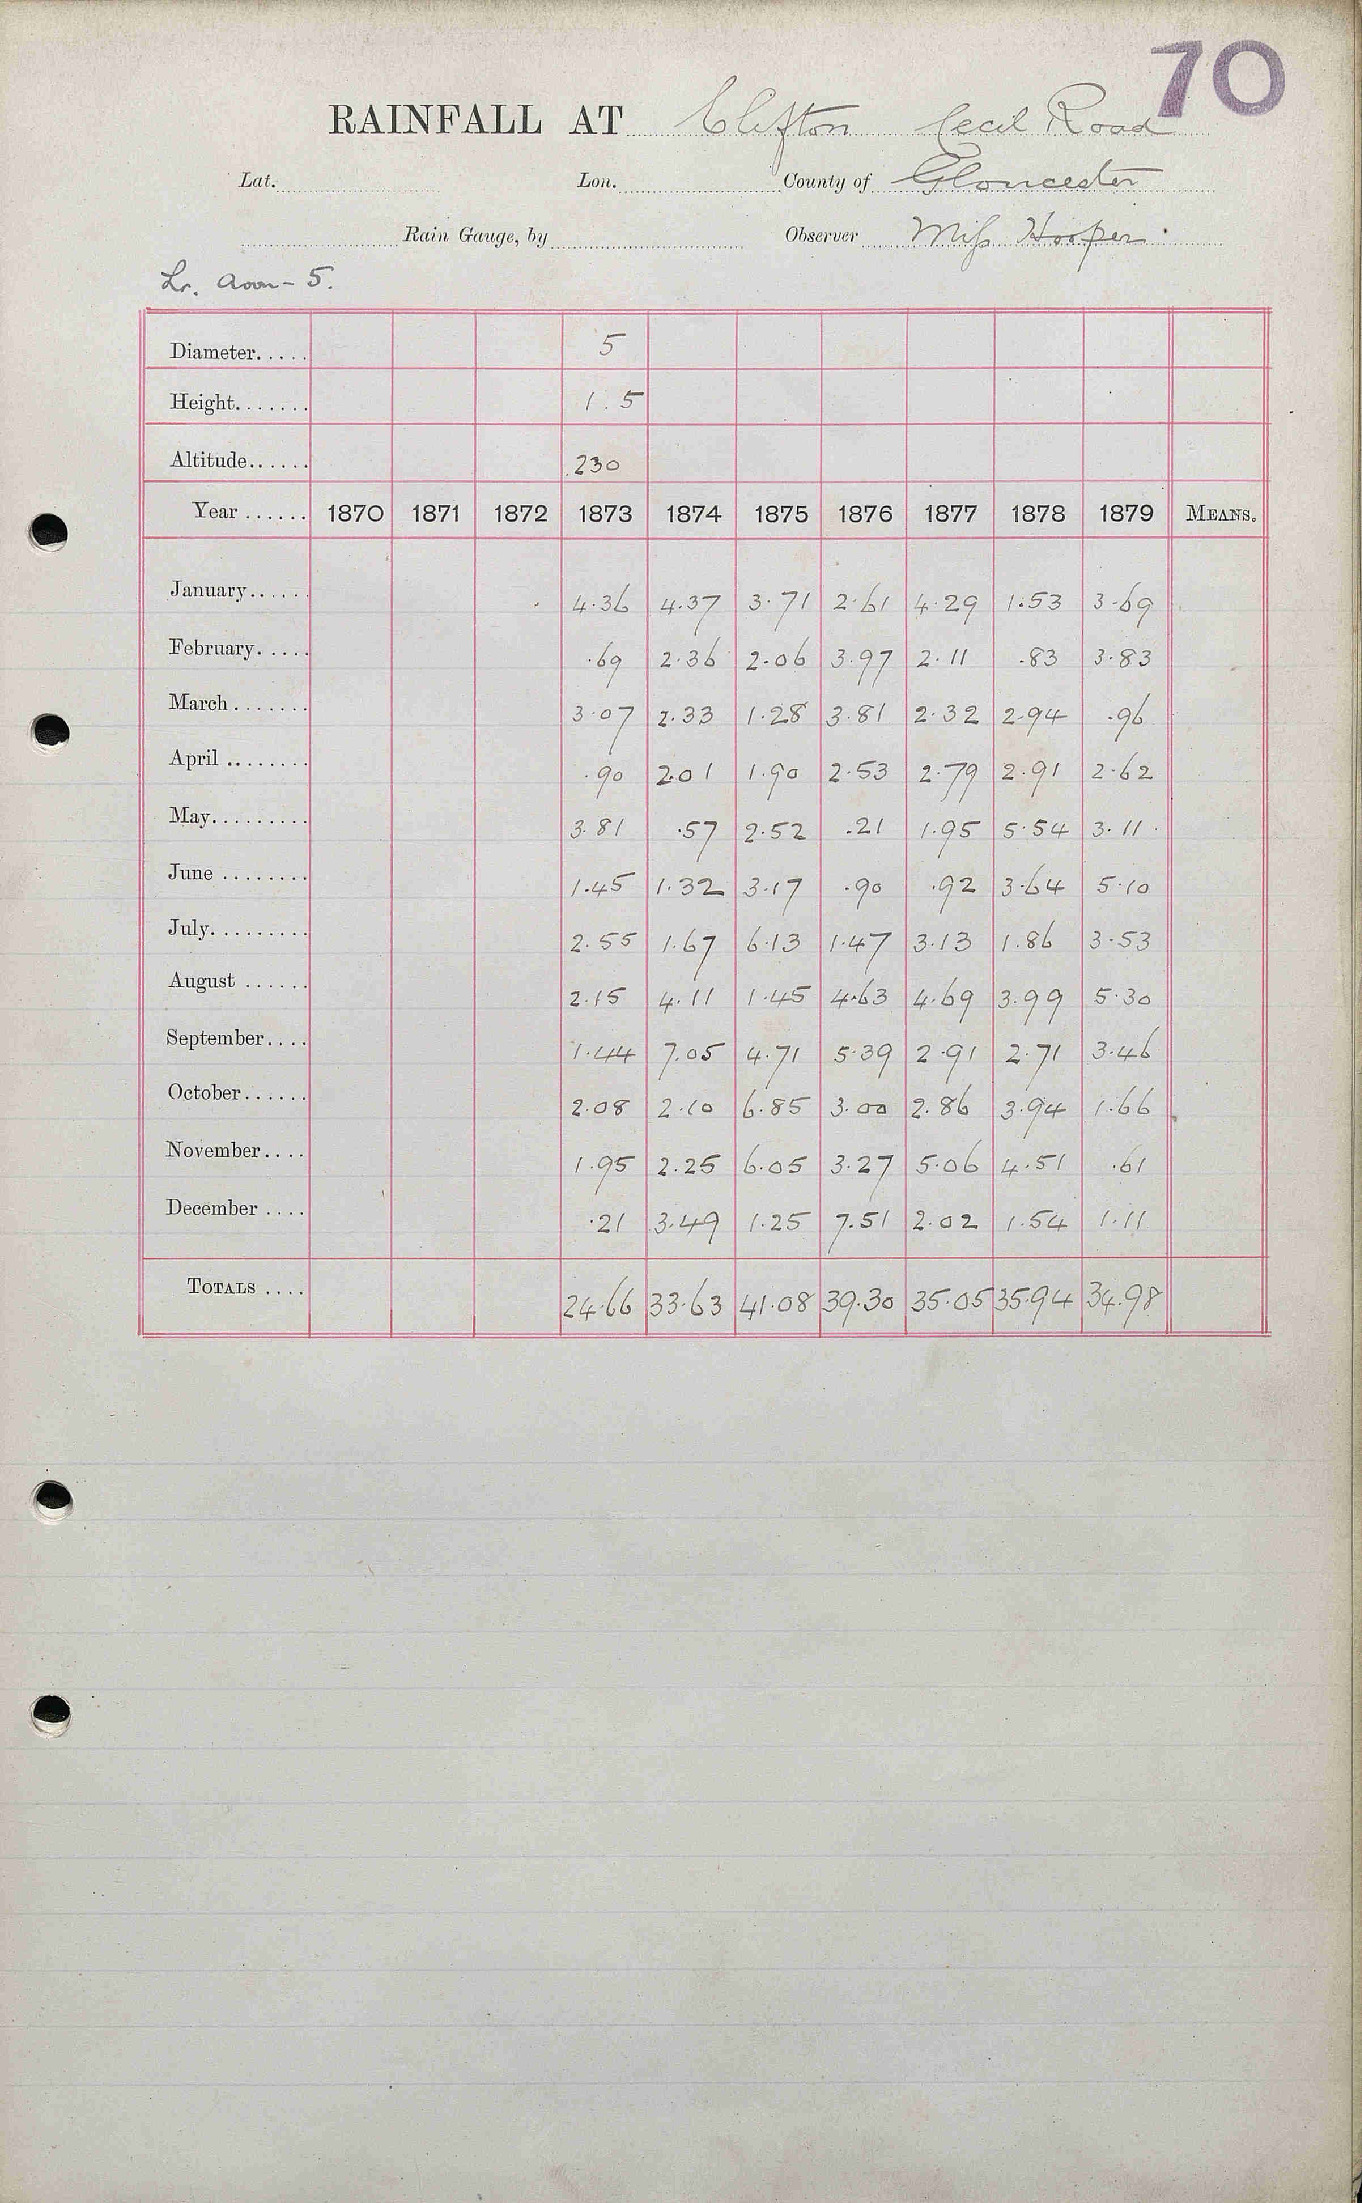 70
RAINFALL AT Clifton Cecil Road
Lat. Lon. County of Gloucester
Rain Gauge, by Observer Miss Hooper
Lr. Avon - 5.
Diameter..... 5
Height....... 1.5
Altitude...... 230
Year ...... 1870 1871 1872 1873 1874 1875 1876 1877 1878 1879 MEANS.
January...... 4.36 4.37 3.71 2.61 4.29 1.53 3.69
February..... .69 2.36 2.06 3.97 2.11 .83 3.83
March ....... 3.07 2.33 1.28 3.81 2.32 2.94 .96
April ........ .90 2.01 1.90 2.53 2.79 2.91 2.62
May......... 3.81 .57 2.52 .21 1.95 5.54 3.11
June ........ 1.45 1.32 3.17 .90 .92 3.64 5.10
July......... 2.55 1.67 6.13 1.47 3.13 1.86 3.53
August ...... 2.15 4.11 1.45 4.63 4.69 3.99 5.30
September.... 1.44 7.05 4.71 5.39 2.91 2.71 3.46
October...... 2.08 2.10 6.85 3.00 2.86 3.94 1.66
November.... 1.95 2.25 6.05 3.27 5.06 4.51 .61
December .... .21 3.49 1.25 7.51 2.02 1.54 1.11
TOTALS .... 24.66 33.63 41.08 39.30 35.05 35.94 34.98